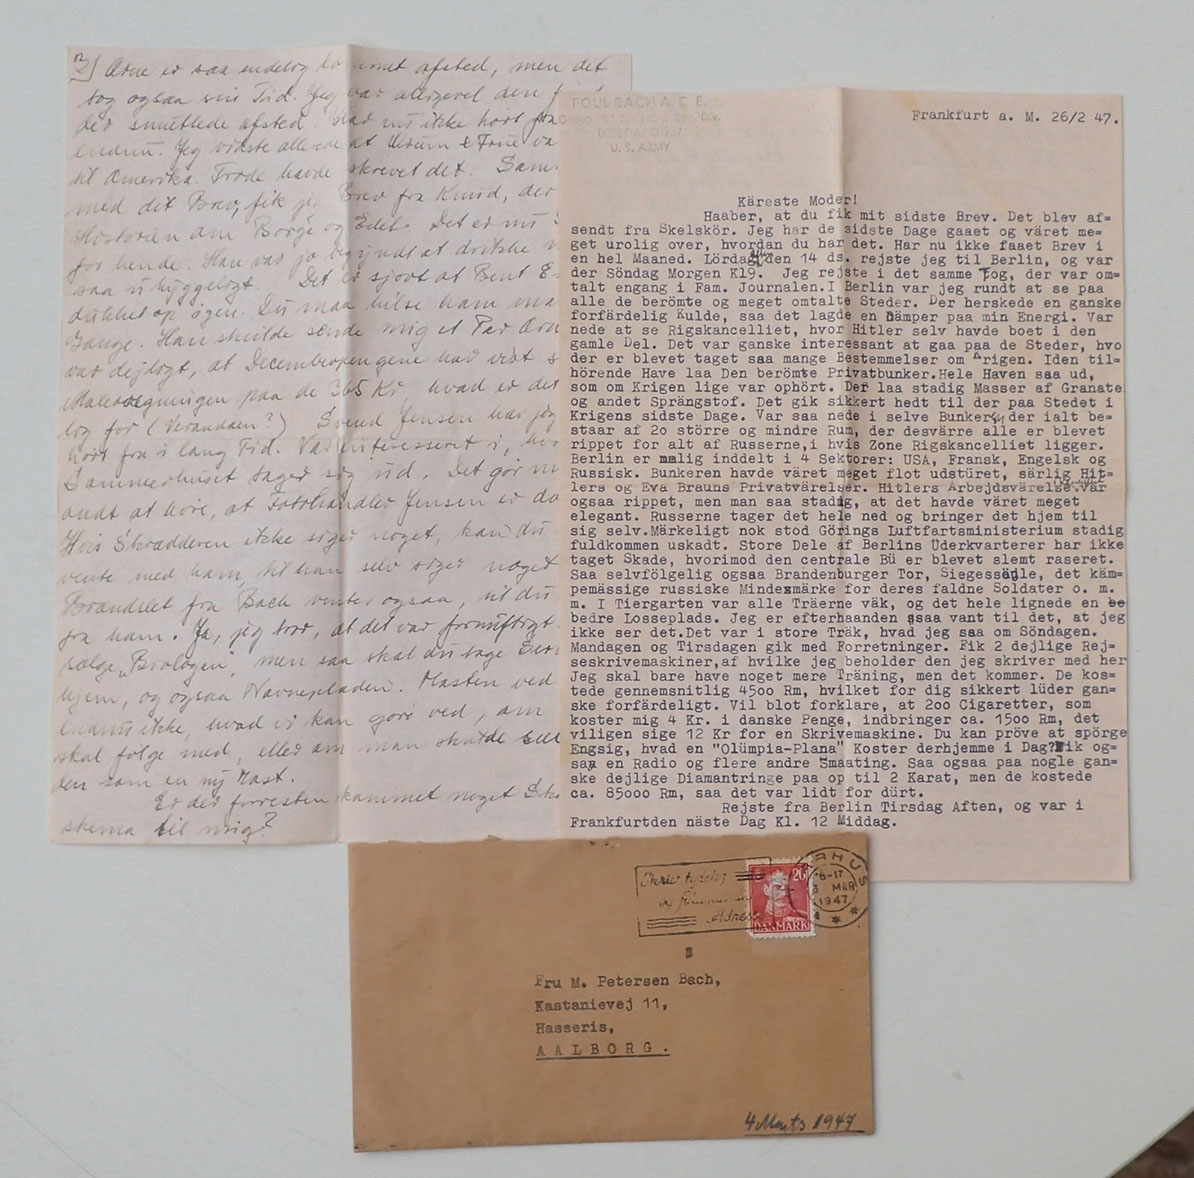 3) Arne er saa endelig kommet afsted, men det
tog ogsaa sin Tid. Jeg var alligevel den
der smuttede afsted. Har nu ikke hört fra
endnu. Jeg vidste allerede at & Frue
til Amerika. Trode havde skrevet det.
med dit Brev, fik jeg Brev fra Knud, der
Historien om Börge og Edel. Det er nu
for hende. Han var jo begyndt at drikke
saa uhyggeligt. Det er sjovt at Bent
dukket op igen. Du maa hilse ham
Gange. Han skulde sende mig et Par
var dejligt, at Decemberpengene har
Malerregningen paa de 365 Kr hvad er det
for (Verandaen?) Svend Jensen har jeg
hört fra i lang Tid. Var interesseret i,
Sommerhuset tager sig ud. Det gör
ondt at höre, at Jensen er
Hvis Skrædderen ikke siger noget, kan du
vente med ham, til han selv siger noget
fra Bach venter ogsaa, til du
fra ham. Ja, jeg tror, at det var fornuftigt
sælge "Biologen", men saa skal du tage
hjem, og ogsaa Navnepladen. Masten ved
endnu ikke, hvad vi kan göre ved, om
skal fölge med, eller om man skulde
den som en ny Mast.
Er der forresten kommet noget
skema til mig?
POUL BACH A.C.E.
U.S. ARMY
Frankfurt a. M. 26/2 47.
Käreste Moder!
Haaber, at du fik mit sidste Brev. Det blev af=
sendt fra Skelskör. Jeg har de sidste Dage gaaet og väret me=
get urolig over, hvordan du har det. Har nu ikke faaet Brev i
en hel Maaned. Lördag den 14 ds. rejste jeg til Berlin, og var
der Söndag Morgen Kl9. Jeg rejste i det samme Tog, der var om=
talt engang i Fam. Journalen.I Berlin var jeg rundt at se paa
alle de berömte og meget omtalte Steder. Der herskede en ganske
forfärdelig Kulde, saa det lagde en Dämper paa min Energi. Var
nede at se Rigskancelliet, hvor Hitler selv havde boet i den
gamle Del. Det var ganske interessant at gaa paa de Steder, hvo
der er blevet taget saa mange Bestemmelser om Krigen. Iden til=
hörende Have laa Den berömte Privatbunker.Hele Haven saa ud,
som om Krigen lige var ophört. Der laa stadig Masser af Granate
og andet Sprängstof. Det gik sikkert hedt til der paa Stedet i
Krigens sidste Dage. Var saa nede i selve Bunkeren, der ialt be=
staar af 2o större og mindre Rum, der desvärre alle er blevet
rippet for alt af Russerne,i hvis Zone Rigskancelliet ligger.
Berlin er nmlig inddelt i 4 Sektorer: USA, Fransk, Engelsk og
Russisk. Bunkeren havde väret meget flot udstüret, särlig Hit=
lers og Eva Brauns Privatvärelser. Hitlers Arbejdsvärelse var
ogsaa rippet, men man saa stadig, at det havde väret meget
elegant. Russerne tager det hele ned og bringer det hjem til
sig selv.Märkeligt nok stod Görings Luftfartsministerium stadig
fuldkommen uskadt. Store Dele af Berlins Üderkvarterer har ikke
taget Skade, hvorimod den centrale Bü er blevet slemt raseret.
Saa selvfölgelig ogsaa Brandenburger Tor, Siegessäule, det käm=
pemässige russiske Mindesmärke for deres faldne Soldater o. m.
m. I Tiergarten var alle Träerne väk, og det hele lignede en be
bedre Losseplads. Jeg er efterhaanden saa vant til det, at jeg
ikke ser det.Det var i store Träk, hvad jeg saa om Söndagen.
Mandagen og Tirsdagen gik med Forretninger. Fik 2 dejlige Rej=
seskrivemaskiner,af hvilke jeg beholder den jeg skriver med her
Jeg skal bare have noget mere Träning, men det kommer. De kos=
tede gennemsnitlig 45oo Rm, hvilket for dig sikkert lüder gan=
ske forfärdeligt. Vil blot forklare, at 2oo Cigaretter, som
koster mig 4 Kr. i danske Penge, indbringer ca. 15oo Rm, det
viligen sige 12 Kr for en Skrivemaskine. Du kan pröve at spörge
Engsig, hvad en "Olümpia-Plana" Koster derhjemme i Dag? Fik og=
saa en Radio og flere andre Smaating. Saa ogsaa paa nogle gan=
ske dejlige Diamantringe paa op til 2 Karat, men de kostede
ca. 85ooo Rm, saa det var lidt for dürt.
Rejste fra Berlin Tirsdag Aften, og var i
Frankfurtden näste Dag Kl. 12 Middag.
Skriv tydelig
Adresse
26
DANMARK
AARHUS
16-17
3 MAR
1947
Fru M. Petersen Bach,
Kastanievej 11,
Hasseris,
AALBORG.
4 Marts 1947